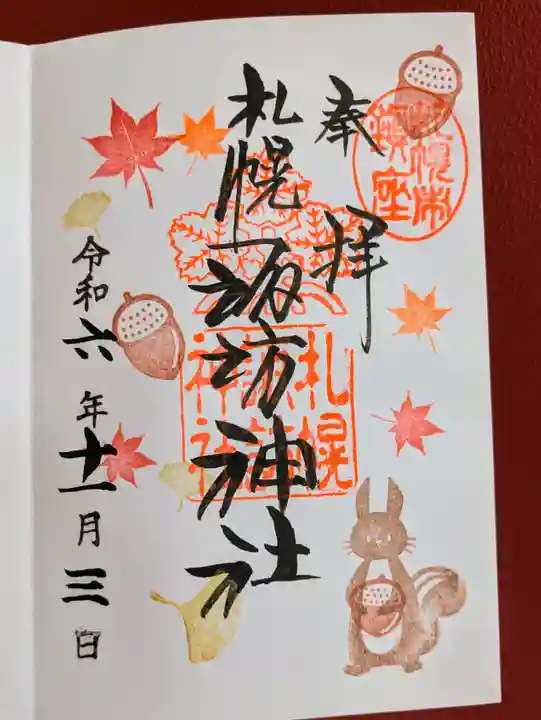 奉拝
札幌諏訪神社
札幌諏訪神社
令和六年十一月三日